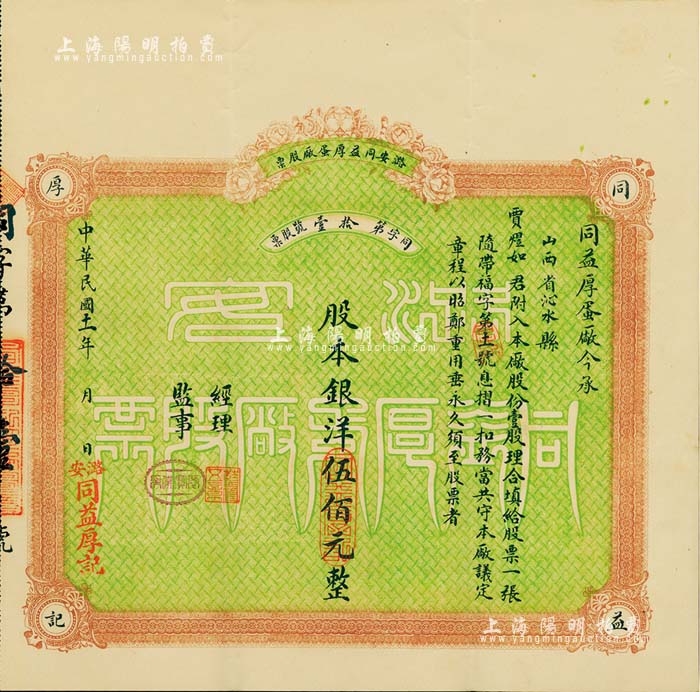 上海陽明拍賣
www.yangmingauction.com
潞安同益厚蛋廠股票
同字第拾壹號股票
同
益
厚
記
同益厚蛋廠今承
山西省沁水縣
賈燈如 君附入本廠股份壹股理合填給股票一張
隨帶福字第十一號息摺一扣務當共守本廠議定
章程以昭鄭重用垂永久須至股票者
股本銀洋伍佰元整
經理
監事
中華民國十一年 月 日
潞安
同益厚記
潞安
同益厚蛋廠股票
上海陽明拍賣
www.yangmingauction.com
上海陽明拍賣
www.yangmingauction.com